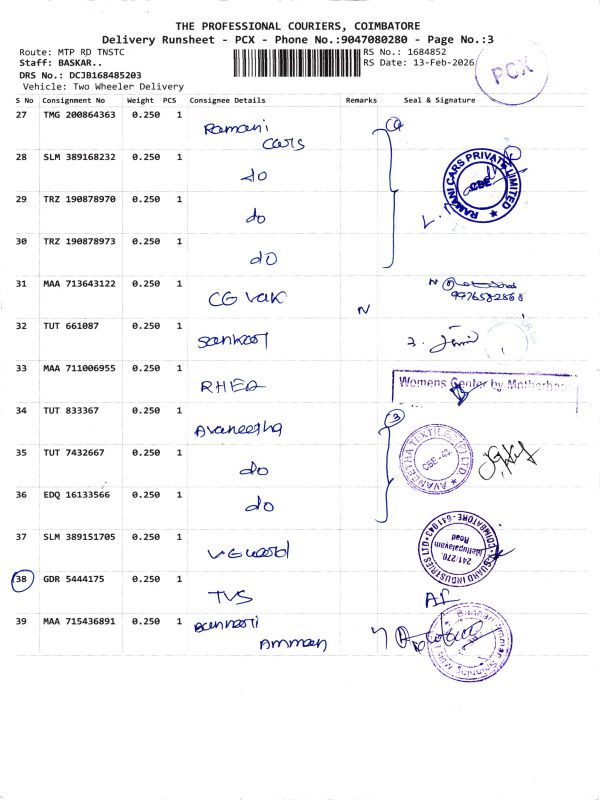 THE PROFESSIONAL COURIERS, COIMBATORE
Delivery Runsheet - PCX - Phone No.:9047080280 - Page No.:3
Route: MTP RD TNSTC
RS No.: 1684852
Staff: BASKAR..
RS Date: 13-Feb-2026
PCX
DRS No.: DCJB168485203
Vehicle: Two Wheeler Delivery
S No Consignment No Weight PCS Consignee Details Remarks Seal & Signature
27 TMG 200864363 0.250 1 Ramani Cars
28 SLM 389168232 0.250 1 do
RAMANI CARS PRIVATE LIMITED
CBE
29 TRZ 190878970 0.250 1 do
30 TRZ 190878973 0.250 1 do
31 MAA 713643122 0.250 1 CG Vak N
9976582868
32 TUT 661087 0.250 1
33 MAA 711006955 0.250 1 RHEA
Womens Center by Motherhood
34 TUT 833367 0.250 1 Avaneetha 3
AVANEETHA TEXTILES (P) LTD.
CBE-43
35 TUT 7432667 0.250 1 do
36 EDQ 16133566 0.250 1 do
37 SLM 389151705 0.250 1 V Guard
V-GUARD INDUSTRIES LTD
241-270, Mettupalayam Road
COIMBATORE - 641 043
38 GDR 5444175 0.250 1 TVS
39 MAA 715436891 0.250 1 Bannari Amman
Bannari Amman Spinning Mills